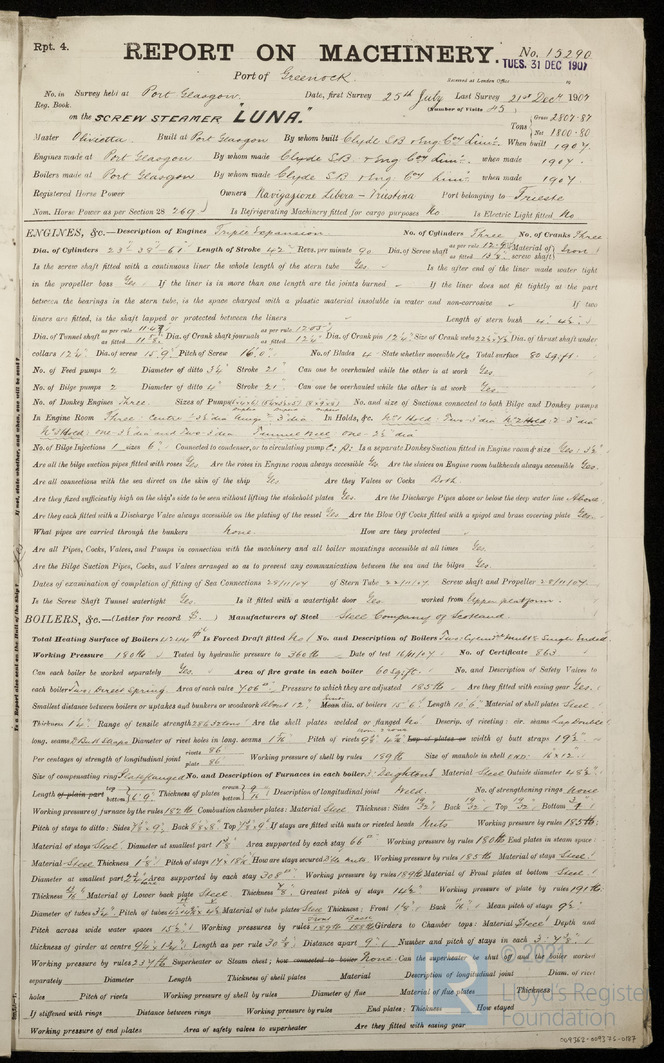 Rpt. 4.
REPORT ON MACHINERY.
No. 15290
TUES. 31 DEC 1907
Port of Greenock
Received at London Office
No. in Survey held at Port Glasgow Date, first Survey 25th July Last Survey 21st Decr 1907
Reg. Book. (Number of Visits 45)
on the SCREW STEAMER "LUNA." Tons { Gross 2807.87 Net 1800.80
Master Built at Port Glasgow By whom built Clyde S.B. & Eng. Coy Limd. When built 1907.
Engines made at Port Glasgow By whom made Clyde S.B. & Eng. Coy Limd. when made 1907.
Boilers made at Port Glasgow By whom made Clyde S.B. & Eng. Coy Limd. when made 1907.
Registered Horse Power Owners Navigazione Libera Triestina Port belonging to Trieste
Nom. Horse Power as per Section 28 269 Is Refrigerating Machinery fitted for cargo purposes No Is Electric Light fitted No
ENGINES, &c.—Description of Engines Triple Expansion No. of Cylinders Three No. of Cranks Three
Dia. of Cylinders 23" 38" 61" Length of Stroke 42" Revs. per minute 90 Dia. of Screw shaft as per rule as fitted Material of screw shaft Iron
Is the screw shaft fitted with a continuous liner the whole length of the stern tube Yes Is the after end of the liner made water tight
in the propeller boss Yes If the liner is in more than one length are the joints burned If the liner does not fit tightly at the part
between the bearings in the stern tube, is the space charged with a plastic material insoluble in water and non-corrosive If two
liners are fitted, is the shaft lapped or protected between the liners Length of stern bush
Dia. of Tunnel shaft as per rule as fitted Dia. of Crank shaft journals as per rule 12.05" as fitted 12¼" Dia. of Crank pin 12¼" Size of Crank webs Dia. of thrust shaft under
collars 12¼" Dia. of screw 15.9" Pitch of Screw 16.0" No. of Blades 4 State whether moveable No Total surface 80 sq.ft.
No. of Feed pumps 2 Diameter of ditto 3¼" Stroke 21" Can one be overhauled while the other is at work Yes.
No. of Bilge pumps 2 Diameter of ditto 4" Stroke 21" Can one be overhauled while the other is at work Yes
No. of Donkey Engines Three. Sizes of Pumps No. and size of Suctions connected to both Bilge and Donkey pumps
In Engine Room Three: Centre 3½ dia Wings 3" dia In Holds, &c. No 1 Hold: Two-3" dia No 2 Hold: 2-3" dia
No 3 Hold: one-3½ dia and Two-3" dia Tunnel Well one-2½ dia
No. of Bilge Injections 1 sizes 6" Connected to condenser, or to circulating pump C.P. Is a separate Donkey Suction fitted in Engine room & size Yes 3½"
Are all the bilge suction pipes fitted with roses Yes Are the roses in Engine room always accessible Yes Are the sluices on Engine room bulkheads always accessible Yes.
Are all connections with the sea direct on the skin of the ship Yes Are they Valves or Cocks Both.
Are they fixed sufficiently high on the ship's side to be seen without lifting the stokehold plates Yes. Are the Discharge Pipes above or below the deep water line Above
Are they each fitted with a Discharge Valve always accessible on the plating of the vessel Yes Are the Blow Off Cocks fitted with a spigot and brass covering plate Yes
What pipes are carried through the bunkers None. How are they protected
Are all Pipes, Cocks, Valves, and Pumps in connection with the machinery and all boiler mountings accessible at all times Yes.
Are the Bilge Suction Pipes, Cocks, and Valves arranged so as to prevent any communication between the sea and the bilges Yes.
Dates of examination of completion of fitting of Sea Connections 28/11/07 of Stern Tube 22/11/07 Screw shaft and Propeller 28/11/07
Is the Screw Shaft Tunnel watertight Yes. Is it fitted with a watertight door Yes. worked from Upper platform.
BOILERS, &c.—(Letter for record S.) Manufacturers of Steel Steel Company of Scotland
Total Heating Surface of Boilers Is Forced Draft fitted No No. and Description of Boilers Two: Single Ended.
Working Pressure 180 lbs Tested by hydraulic pressure to 360 lbs Date of test No. of Certificate 863
Can each boiler be worked separately Yes. Area of fire grate in each boiler 60 sq.ft. No. and Description of Safety Valves to
each boiler Two, Direct Spring. Area of each valve 7.06 Pressure to which they are adjusted 185 lbs Are they fitted with easing gear Yes.
Smallest distance between boilers or uptakes and bunkers or woodwork about 12" Mean dia. of boilers 15'6" Length 10'6" Material of shell plates Steel
Thickness Range of tensile strength 28 & 32 tons Are the shell plates welded or flanged No Descrip. of riveting: cir. seams Lap Double
long. seams D Butt Straps Diameter of rivet holes in long. seams Pitch of rivets Lap of plates or width of butt straps 19½"
Per centages of strength of longitudinal joint rivets 86 plate 86 Working pressure of shell by rules 189 lbs Size of manhole in shell END: 16 x 12"
Size of compensating ring Flanged No. and Description of Furnaces in each boiler 3: Deightons Material Steel Outside diameter
Length of plain part top bottom 6.9" Thickness of plates crown bottom Description of longitudinal joint Weld. No. of strengthening rings None
Working pressure of furnace by the rules 187 lbs Combustion chamber plates: Material Steel Thickness: Sides 19/32 Back 19/32 Top 19/32 Bottom
Pitch of stays to ditto: Sides Back Top If stays are fitted with nuts or riveted heads Nuts Working pressure by rules 185 lbs.
Material of stays Steel. Diameter at smallest part Area supported by each stay 66 Working pressure by rules 180 lbs End plates in steam space:
Material Steel Thickness 1⅛" Pitch of stays 17 x 18⅛ How are stays secured Nuts. Working pressure by rules 185 lbs Material of stays Steel.
Diameter at smallest part Area supported by each stay 308 Working pressure by rules 189 lbs Material of Front plates at bottom Steel
Thickness Material of Lower back plate Steel Thickness Greatest pitch of stays 14½" Working pressure of plate by rules 191 lbs.
Diameter of tubes 3¼" Pitch of tubes Material of tube plates Steel Thickness: Front Back Mean pitch of stays 9½
Pitch across wide water spaces Working pressures by rules 189 lbs 188 lbs Girders to Chamber tops: Material Steel Depth and
thickness of girder at centre Length as per rule Distance apart 9" Number and pitch of stays in each
Working pressure by rules Superheater or Steam chest; how connected to boiler None Can the superheater be shut off and the boiler worked
separately Diameter Length Thickness of shell plates Material Description of longitudinal joint Diam. of rivet
holes Pitch of rivets Working pressure of shell by rules Diameter of flue Material of flue plates Thickness
If stiffened with rings Distance between rings Working pressure by rules End plates: Thickness How stayed
Working pressure of end plates Area of safety valves to superheater Are they fitted with easing gear
© 2021
Lloyd's Register
Foundation
009362-009375-0187